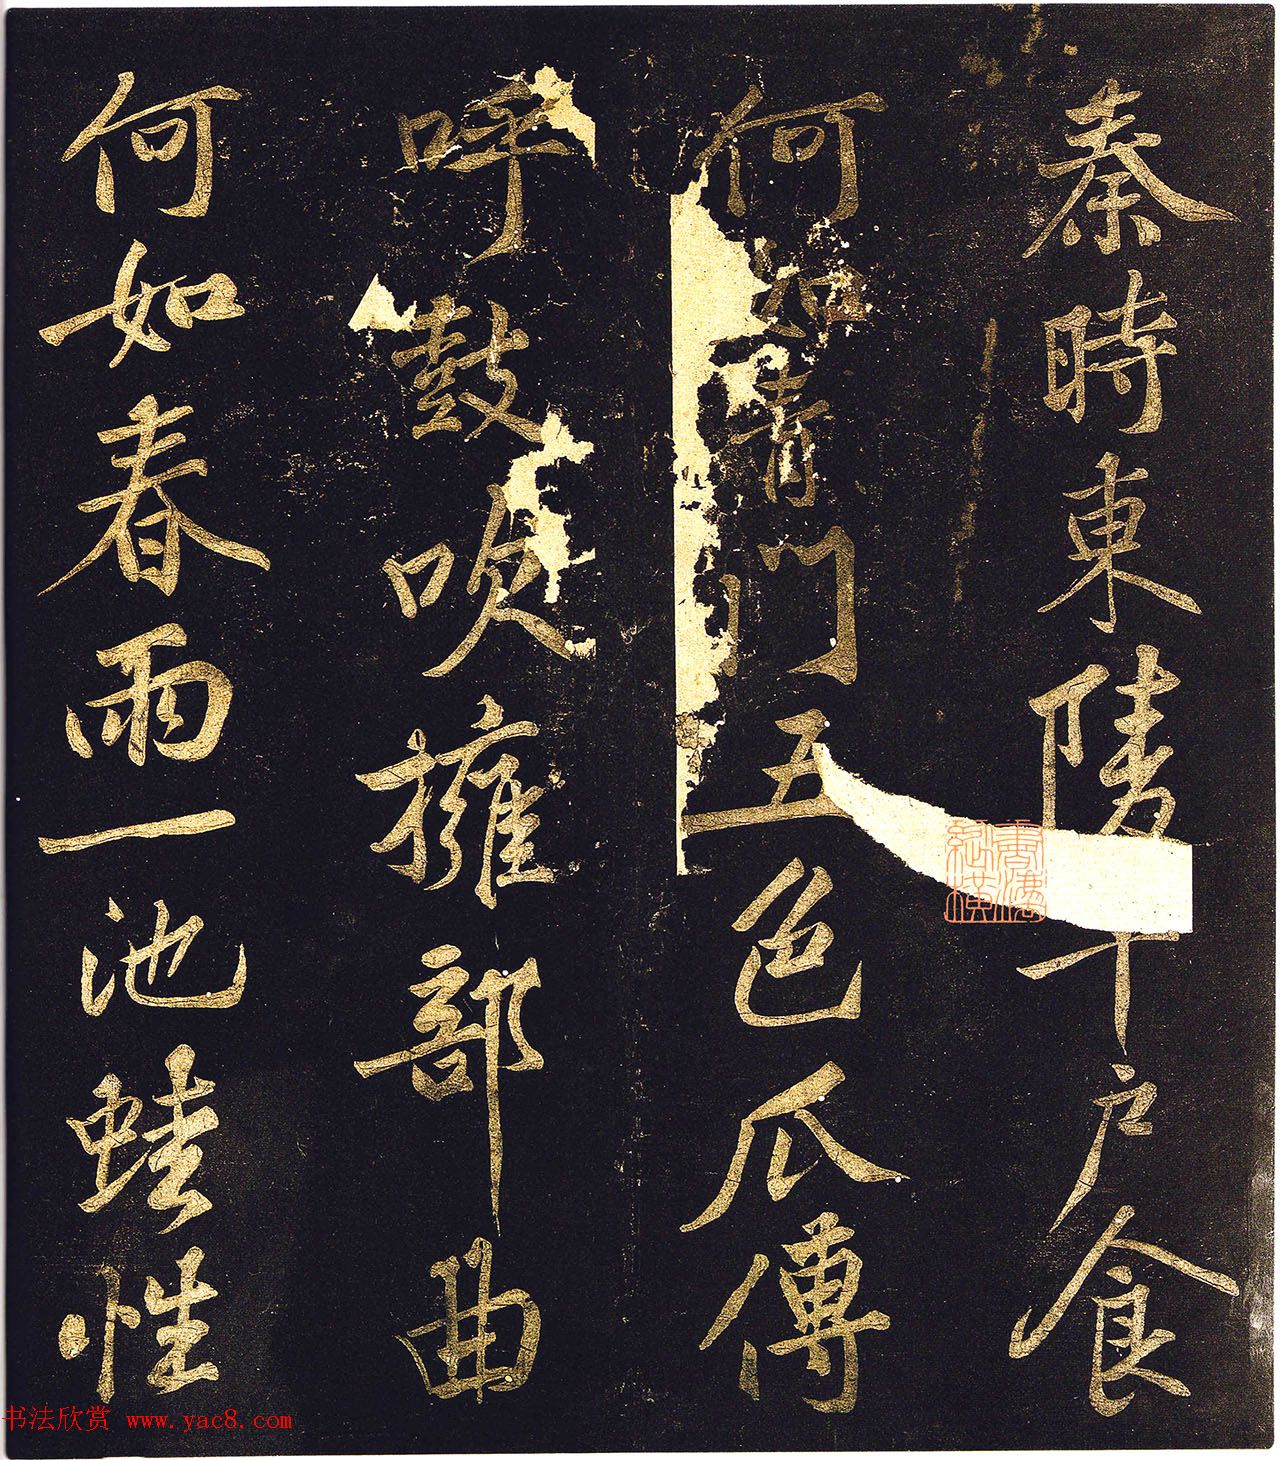 秦時東陵千戶食
何如青門五色瓜傳
呼鼓吹擁部曲
何如春雨一池蛙性
书法欣赏 www.yac8.com